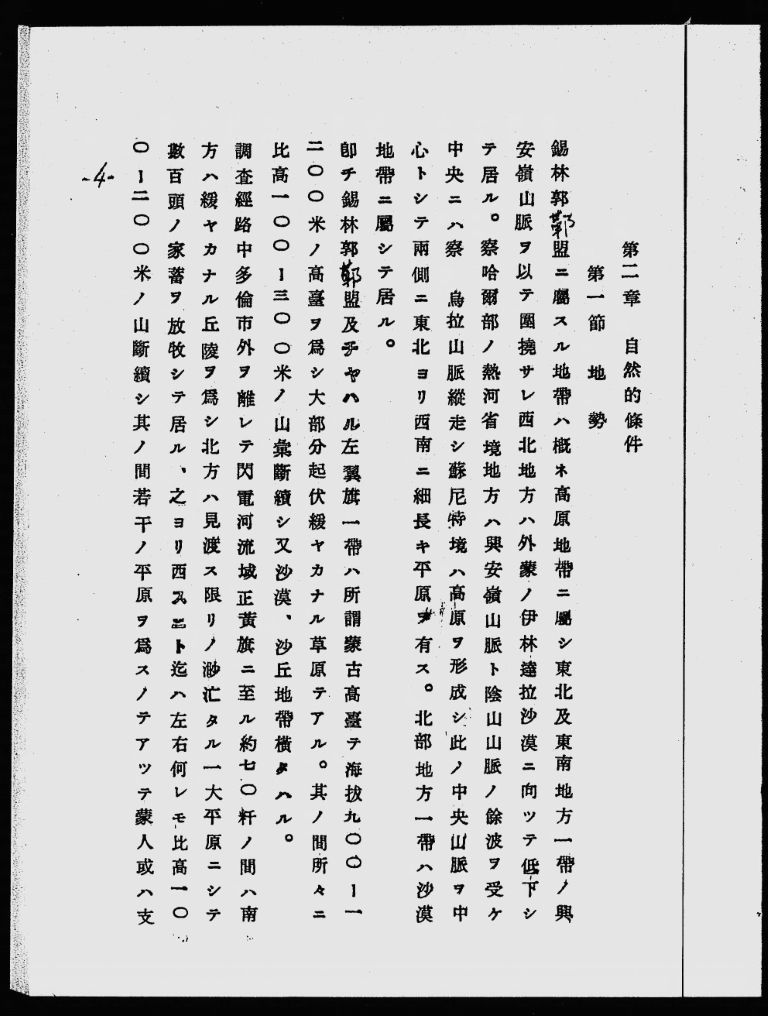 第二章 自然的條件
第一節 地勢
錫林郭鄂盟ニ屬スル地帶ハ概ネ高原地帶ニ屬シ東北及東南地方一帶ノ興
安嶺山脈ヲ以テ圍撓サレ西北地方ハ外蒙ノ伊林達拉沙漠ニ向ツテ低下シ
テ居ル。察哈爾部ノ熱河省境地方ハ興安嶺山脈ト陰山山脈ノ餘波ヲ受ケ
中央ニハ察 烏拉山脈縱走シ蘇尼特境ハ高原ヲ形成シ此ノ中央山脈ヲ中
心トシテ兩側ニ東北ヨリ西南ニ細長キ平原ヲ有ス。北部地方一帶ハ沙漠
地帶ニ屬シテ居ル。
卽チ錫林郭鄂盟及チヤハル左翼旗一帶ハ所謂蒙古高臺テ海拔九〇〇ー一
二〇〇米ノ高臺ヲ爲シ大部分起伏緩ヤカナル草原テアル。其ノ間所々ニ
比高一〇〇ー三〇〇米ノ山彙斷續シ又沙漠、沙丘地帶橫タハル。
調査經路中多倫市外ヲ離レテ閃電河流域正黃旗ニ至ル約七〇粁ノ間ハ南
方ハ緩ヤカナル丘陵ヲ爲シ北方ハ見渡ス限リノ渺茫タル一大平原ニシテ
數百頭ノ家蓄ヲ放牧シテ居ル、之ヨリ西スニト迄ハ左右何レモ比高一〇
〇ー二〇〇米ノ山斷續シ其ノ間若干ノ平原ヲ爲スノテアツテ蒙人或ハ支
-4-